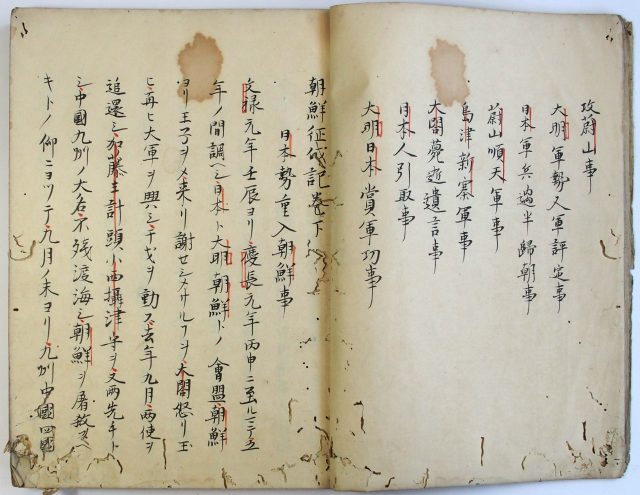 攻蔚山事
大明軍勢又軍評定事
日本軍兵過半歸朝事
蔚山順天軍事
島津新寨軍事
大閤薨逝遺言事
日本人引取事
大明日本賞軍功事
朝鮮征伐記巻下
日本勢重入朝鮮事
文禄元年壬辰ヨリ慶長元年丙申ニ至ルニテ五
年ノ間謌シ日本ト大明朝鮮トノ會盟朝鮮
ヨリ王子ヲメ来リ謝セシメサルヲ大閤怒リ玉
ヒ再ヒ大軍ヲ興シ干戈ヲ動ス去年九月両使ヲ
追還シ加藤主計頭小西攝津守ヲ又両先チト
シ中國九州ノ大名不残渡海シ朝鮮ヲ屠殺スヘ
キトノ仰ニヨツテ九月ノ末ヨリ九州中國四國